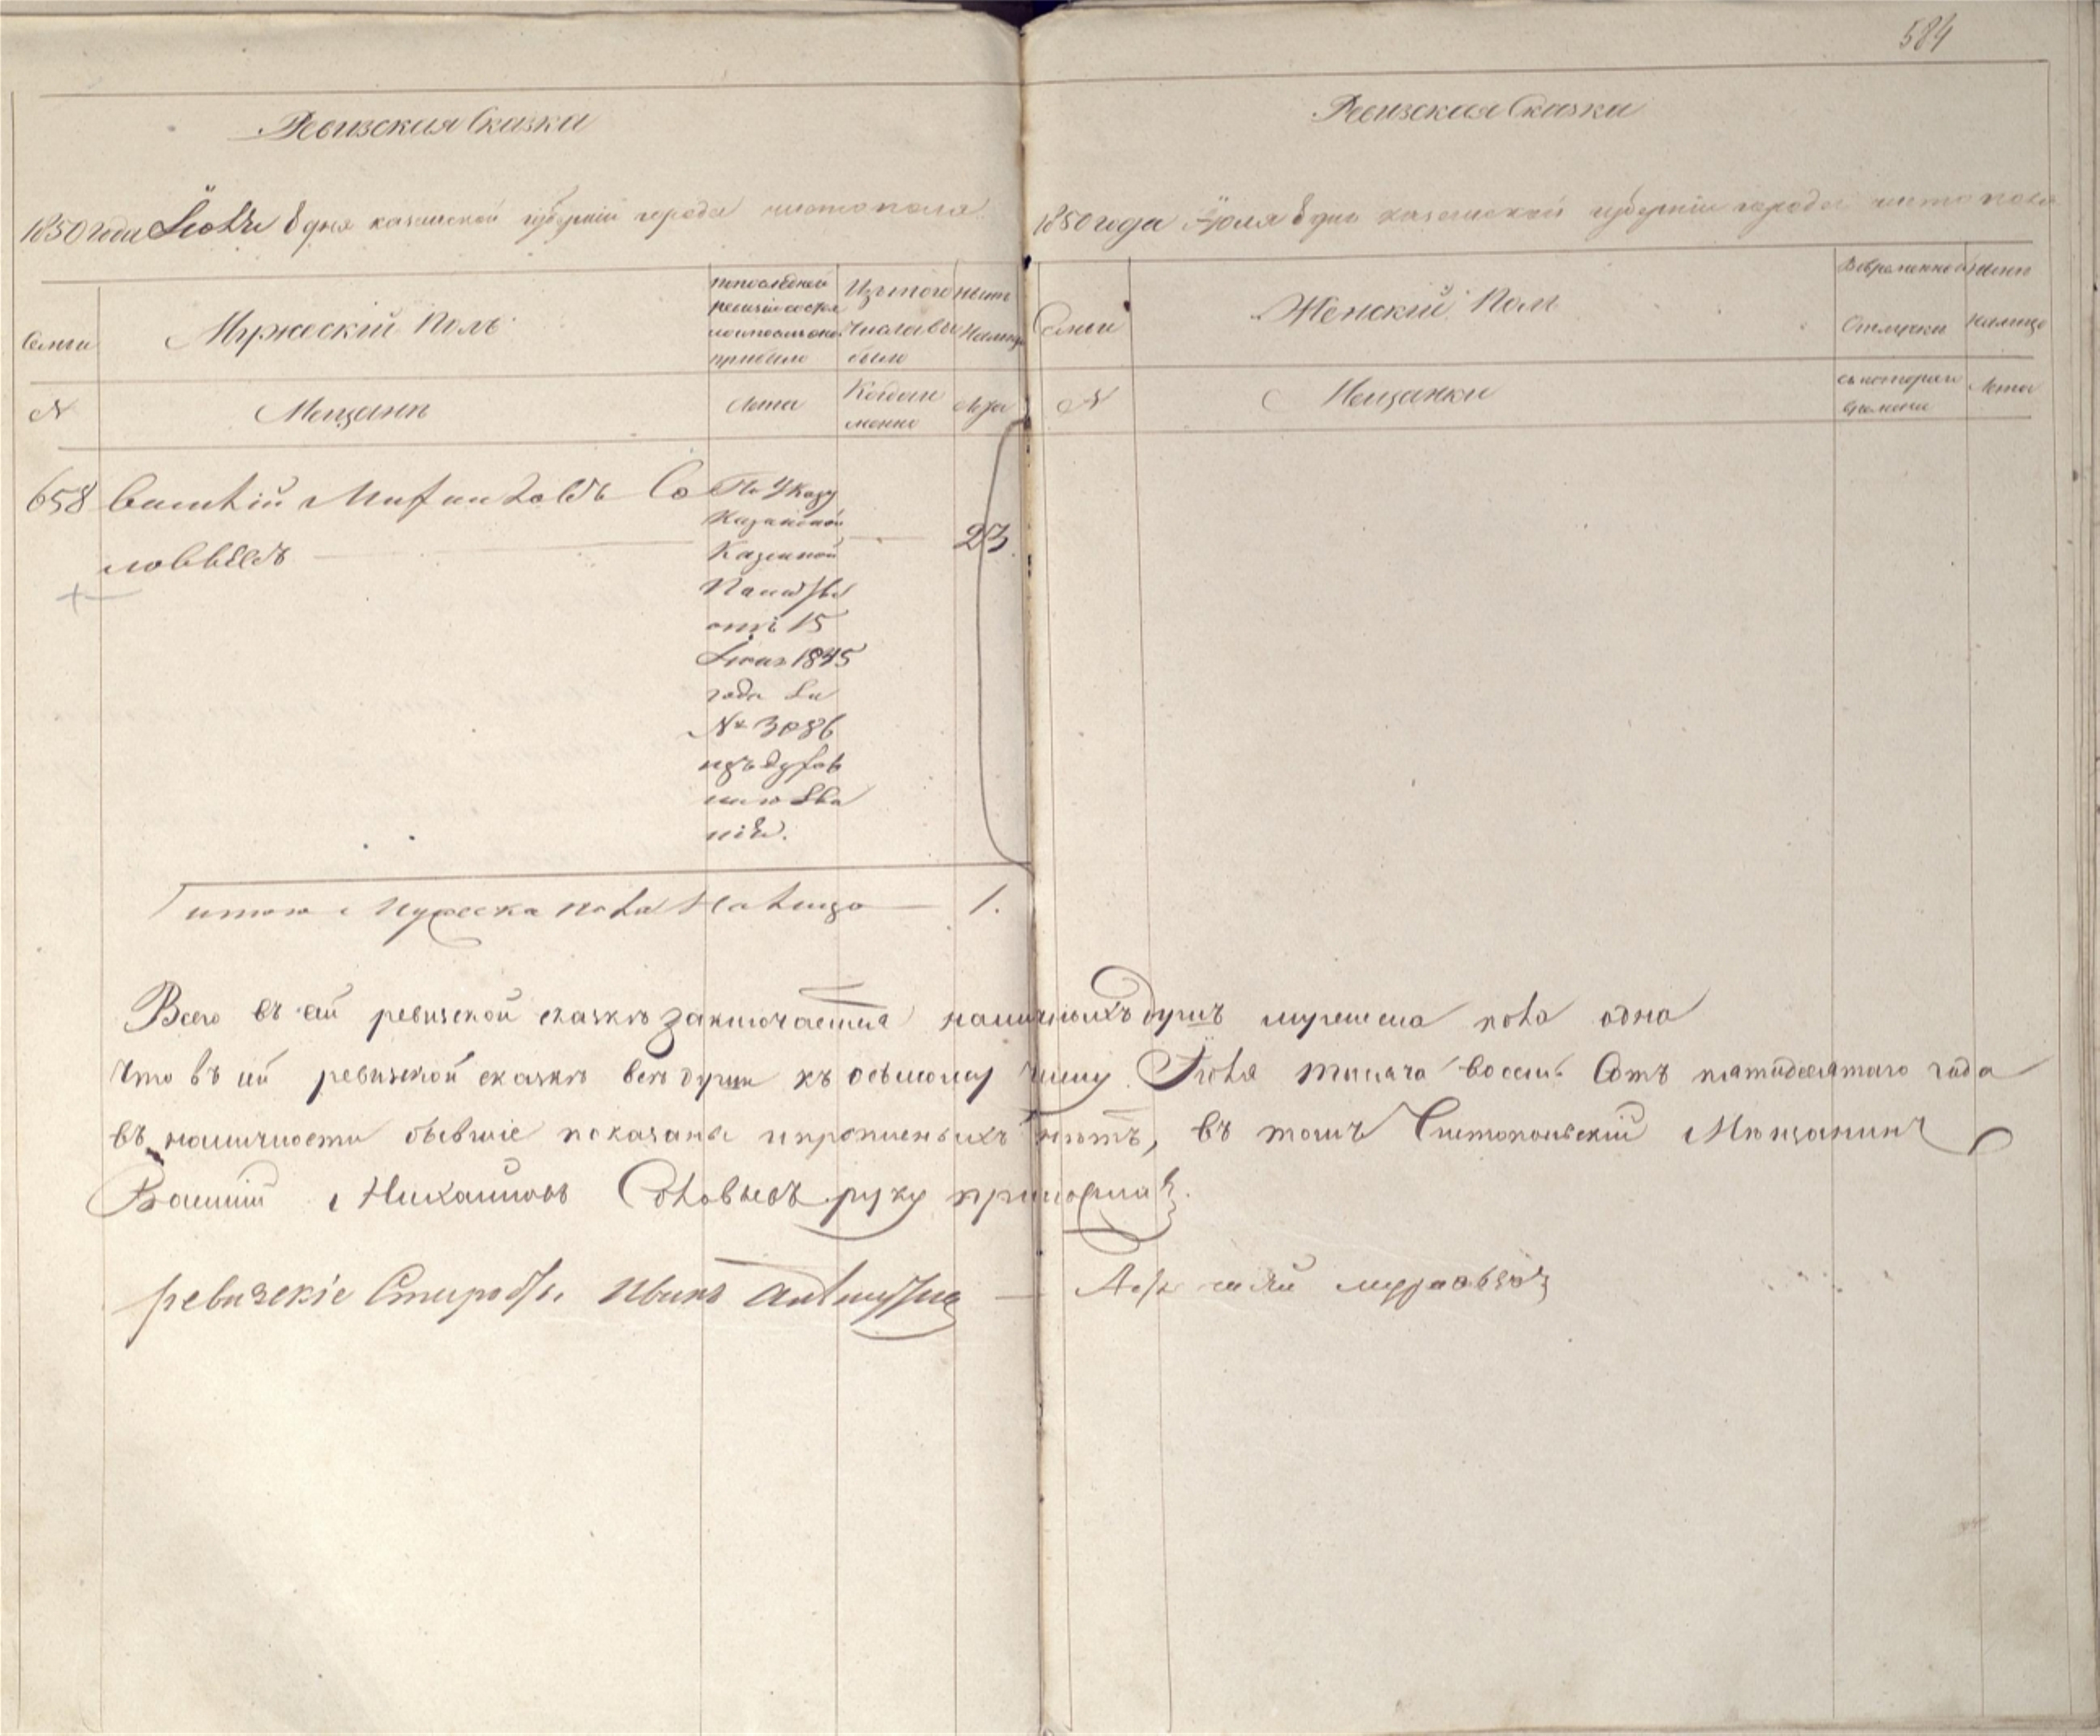 584
Ревизская Сказка
1850 года Іюля 8 дня казанской губерніи города чистополя
Семьи
Мужескій Полъ
по последней
ревизіи состоя
ло и после оной
прибыло
Изъ того
числа вы
было
Ныне
Налицо
N
Мещанъ
Лета
Когда и
менно
Лета
658 Василій Михайловъ Со
ловьевъ
По Указу
Казанской
Казенной
Палаты
отъ 15
1845
года за
№ 3086
изъ духов
наго зва
нія.
23
итого Мужеска пола Налицо 1.
Ревизская Сказка
1850 года Іюля 8 дня казанской губерніи города чистополя
Семьи
Женскій Полъ
Во временной
Отлучки
Ныне
налицо
N
Мещанки
съ котораго
времени
Лета
Всего въ сей ревизской сказке заключается наличныхъ душъ мужеска пола одна
Что въ сей ревизской сказке все души къ осьмому числу Іюля тысяча восемь Сотъ пятидесятаго года
въ наличности бывшіе показаны и прописныхъ нетъ, въ томъ Чистопольскій Мещанинъ
Василій Михайловъ Соловьевъ руку приложилъ.
ревизскіе Старосты Иванъ